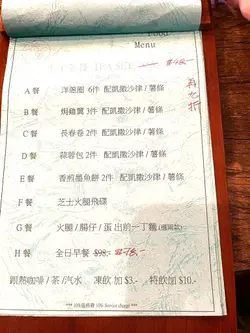 Food
Menu
TEA SET $48.-
A餐 洋蔥圈 6件 配凱撒沙律/薯條
B餐 焗雞翼 3件 配凱撒沙律/薯條
C餐 長春卷 2件 配凱撒沙律/薯條
D餐 蒜蓉包 2件 配凱撒沙律/薯條
E餐 香煎墨魚餅 2件 配凱撒沙律/薯條
F餐 芝士火腿飛碟
G餐 火腿/腸仔/蛋 出前一丁麵
H餐 全日早餐 $98.- $78.-
跟熱咖啡/茶/汽水 凍飲加$3.- 特飲加$10.-
*** 10% Service charge ***
再七折